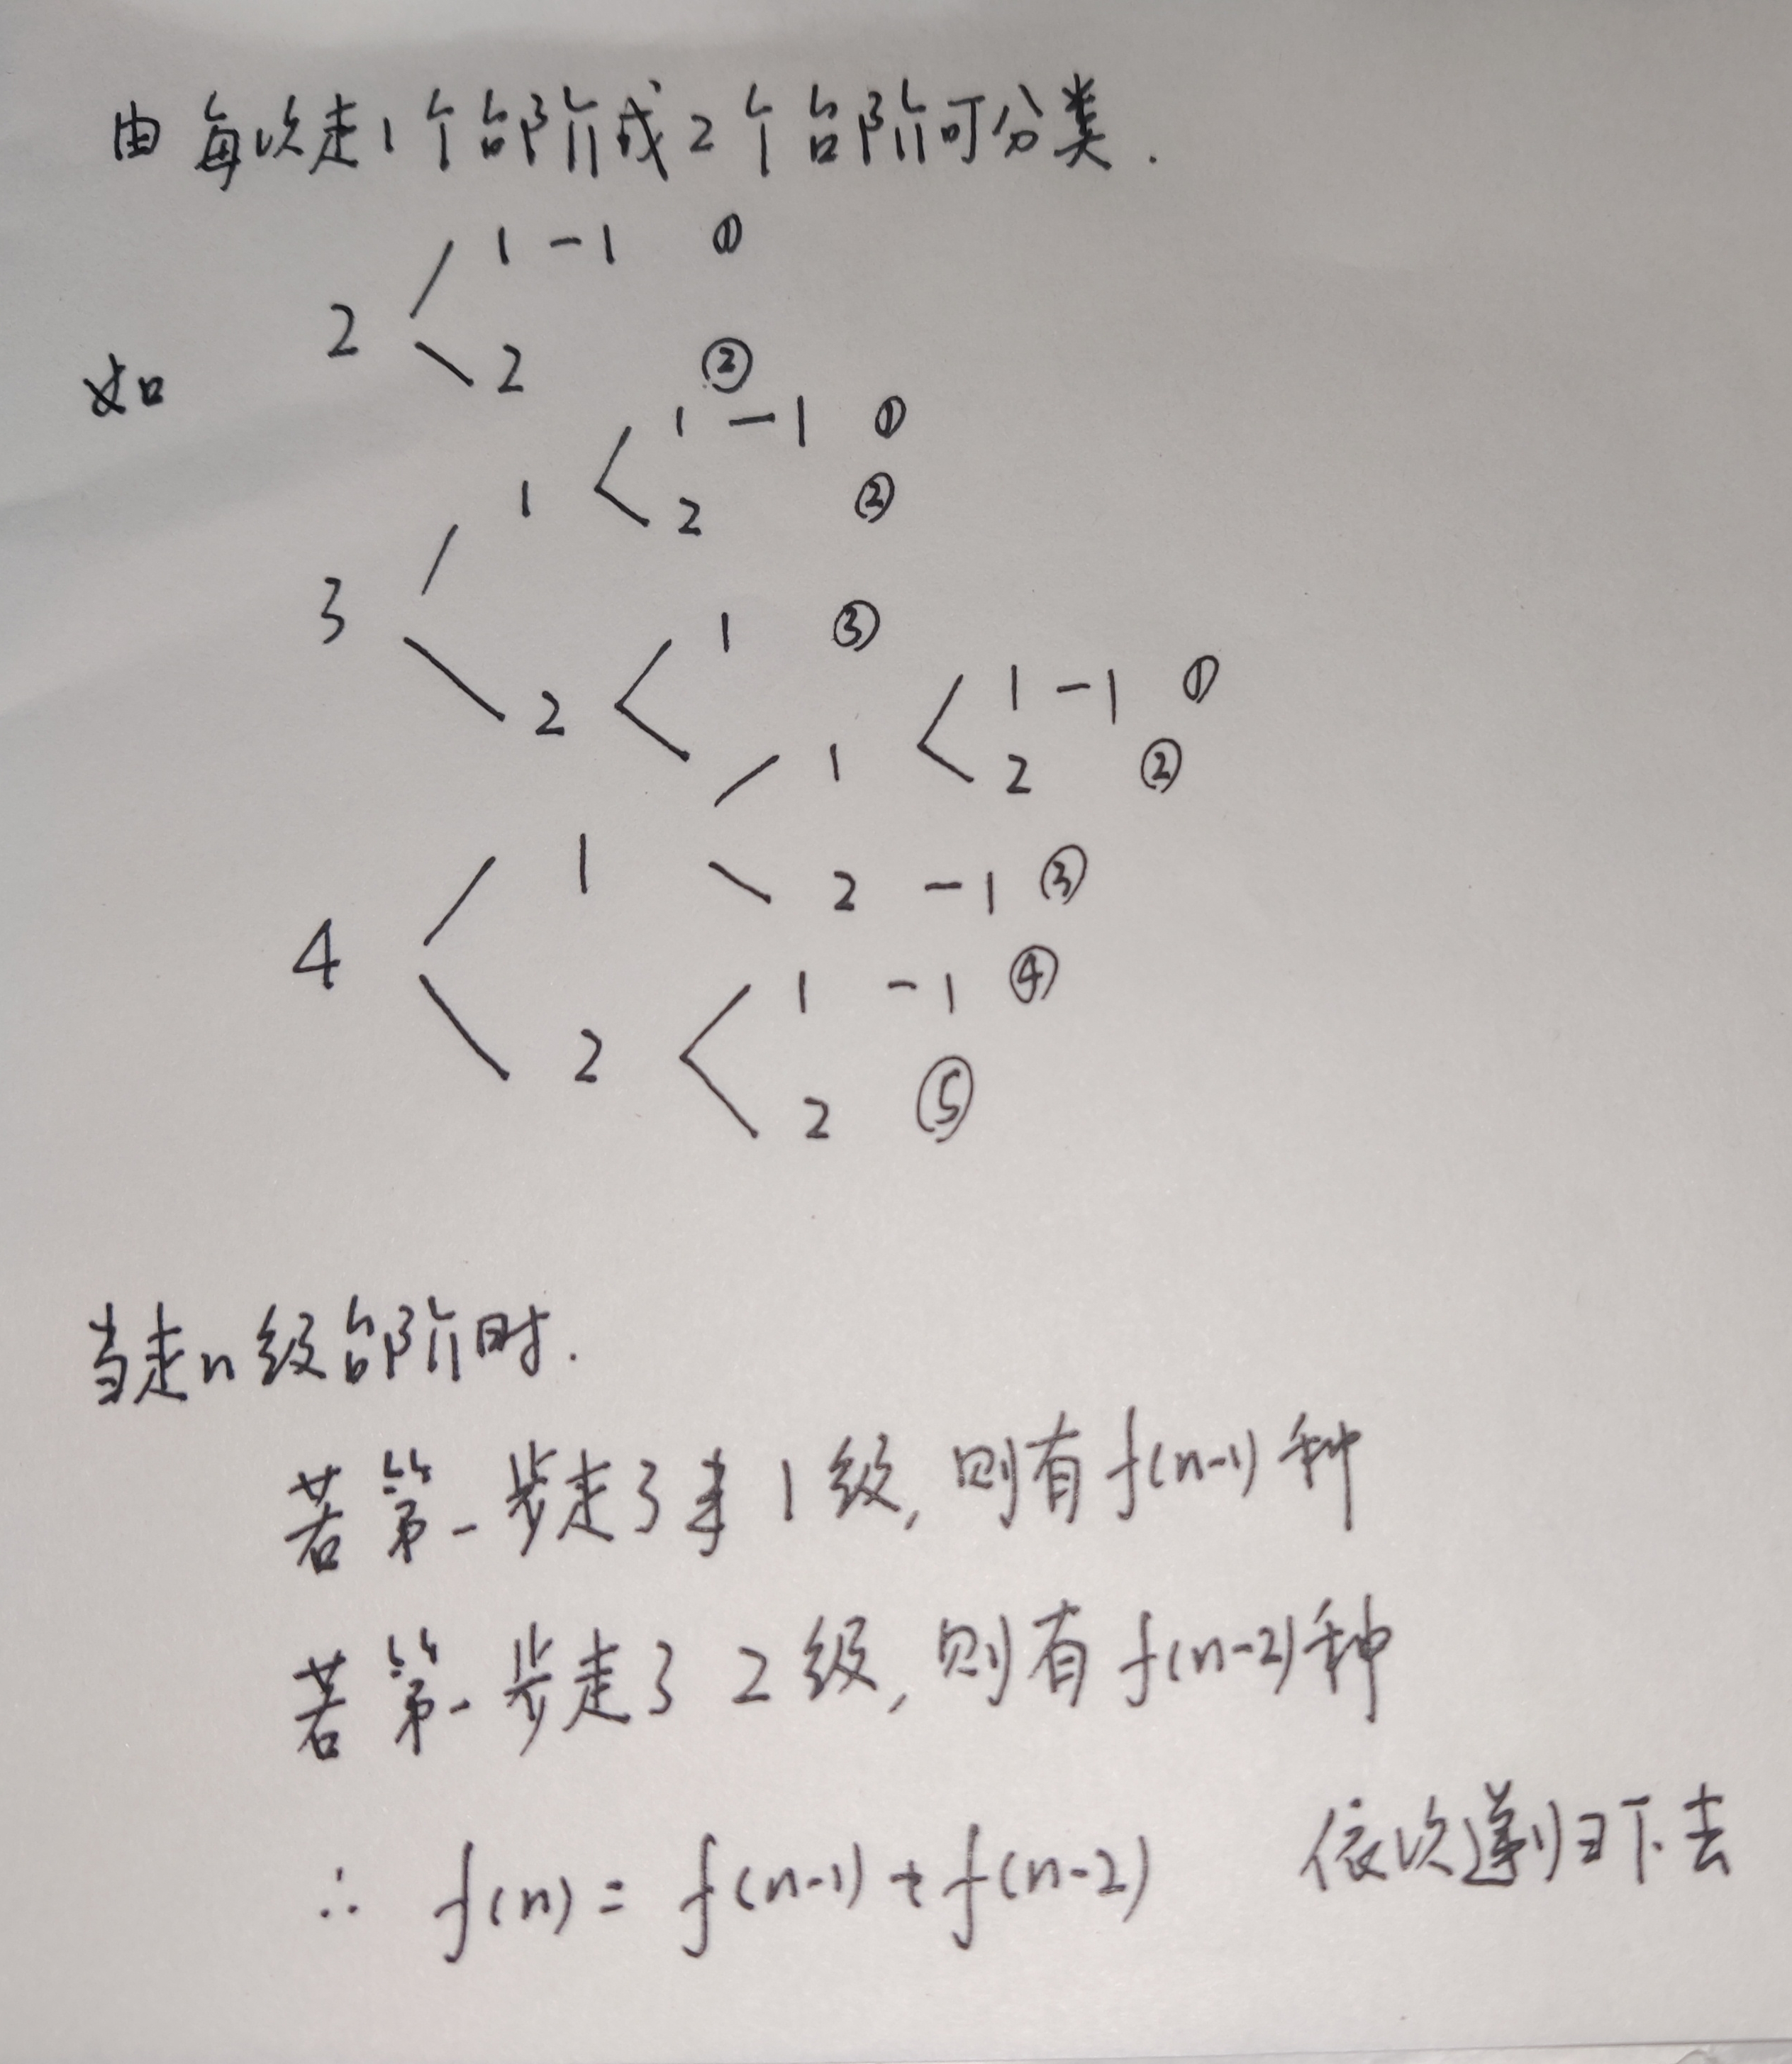 由每次走1个台阶或2个台阶可分类.
1-1 ①
2
如
2 ②
1-1 ①
1
2 ②
3
1 ③
2
1-1 ①
1
2 ②
1
2-1 ③
4
1-1 ④
2
2 ⑤
当走n级台阶时.
若第一步走了1级,则有f(n-1)种
若第一步走了2级,则有f(n-2)种
∴ f(n)=f(n-1)+f(n-2) 依次递归下去